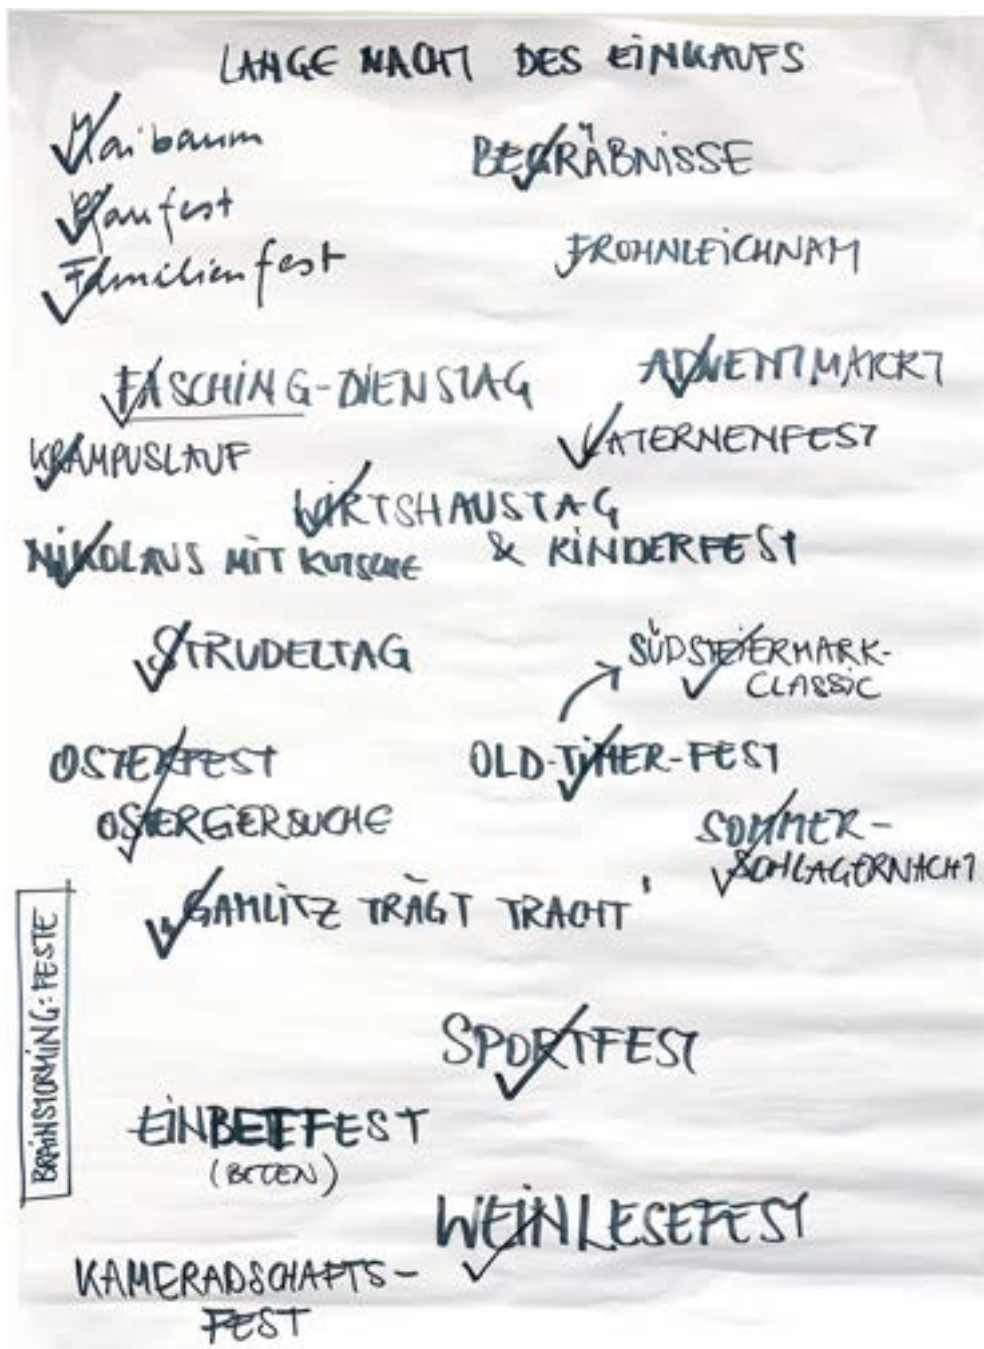 LANGE NACHT DES EINKAUFS
Maibaum
BEGRÄBNISSE
Familienfest
FROHNLEICHNAM
FASCHING-DIENSTAG
ADVENTMARKT
KRAMPUSLAUF
LATERNENFEST
WIRTSHAUSTAG
& KINDERFEST
NIKOLAUS MIT KUTSCHE
STRUDELTAG
SÜDSTEIERMARK-
CLASSIC
OSTERFEST
OLD-TIMER-FEST
OSTEREIERSUCHE
SOMMER-
SCHLAGERNACHT
"GAMLITZ TRÄGT TRACHT"
BRAINSTORMING: FESTE
SPORTFEST
EINBETTFEST
(BETEN)
WEINLESEFEST
KAMERADSCHAFTS-
FEST